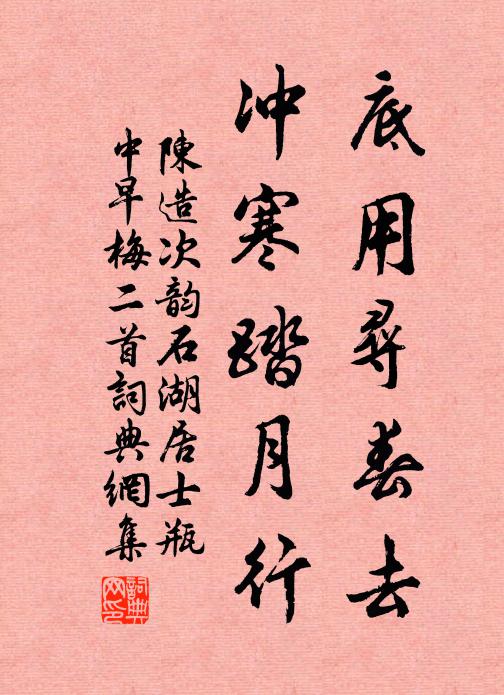 底用尋春去
冲寒踏月行
陳造次韵石湖居士瓶
中早梅二首詞典網集
詞典
网印